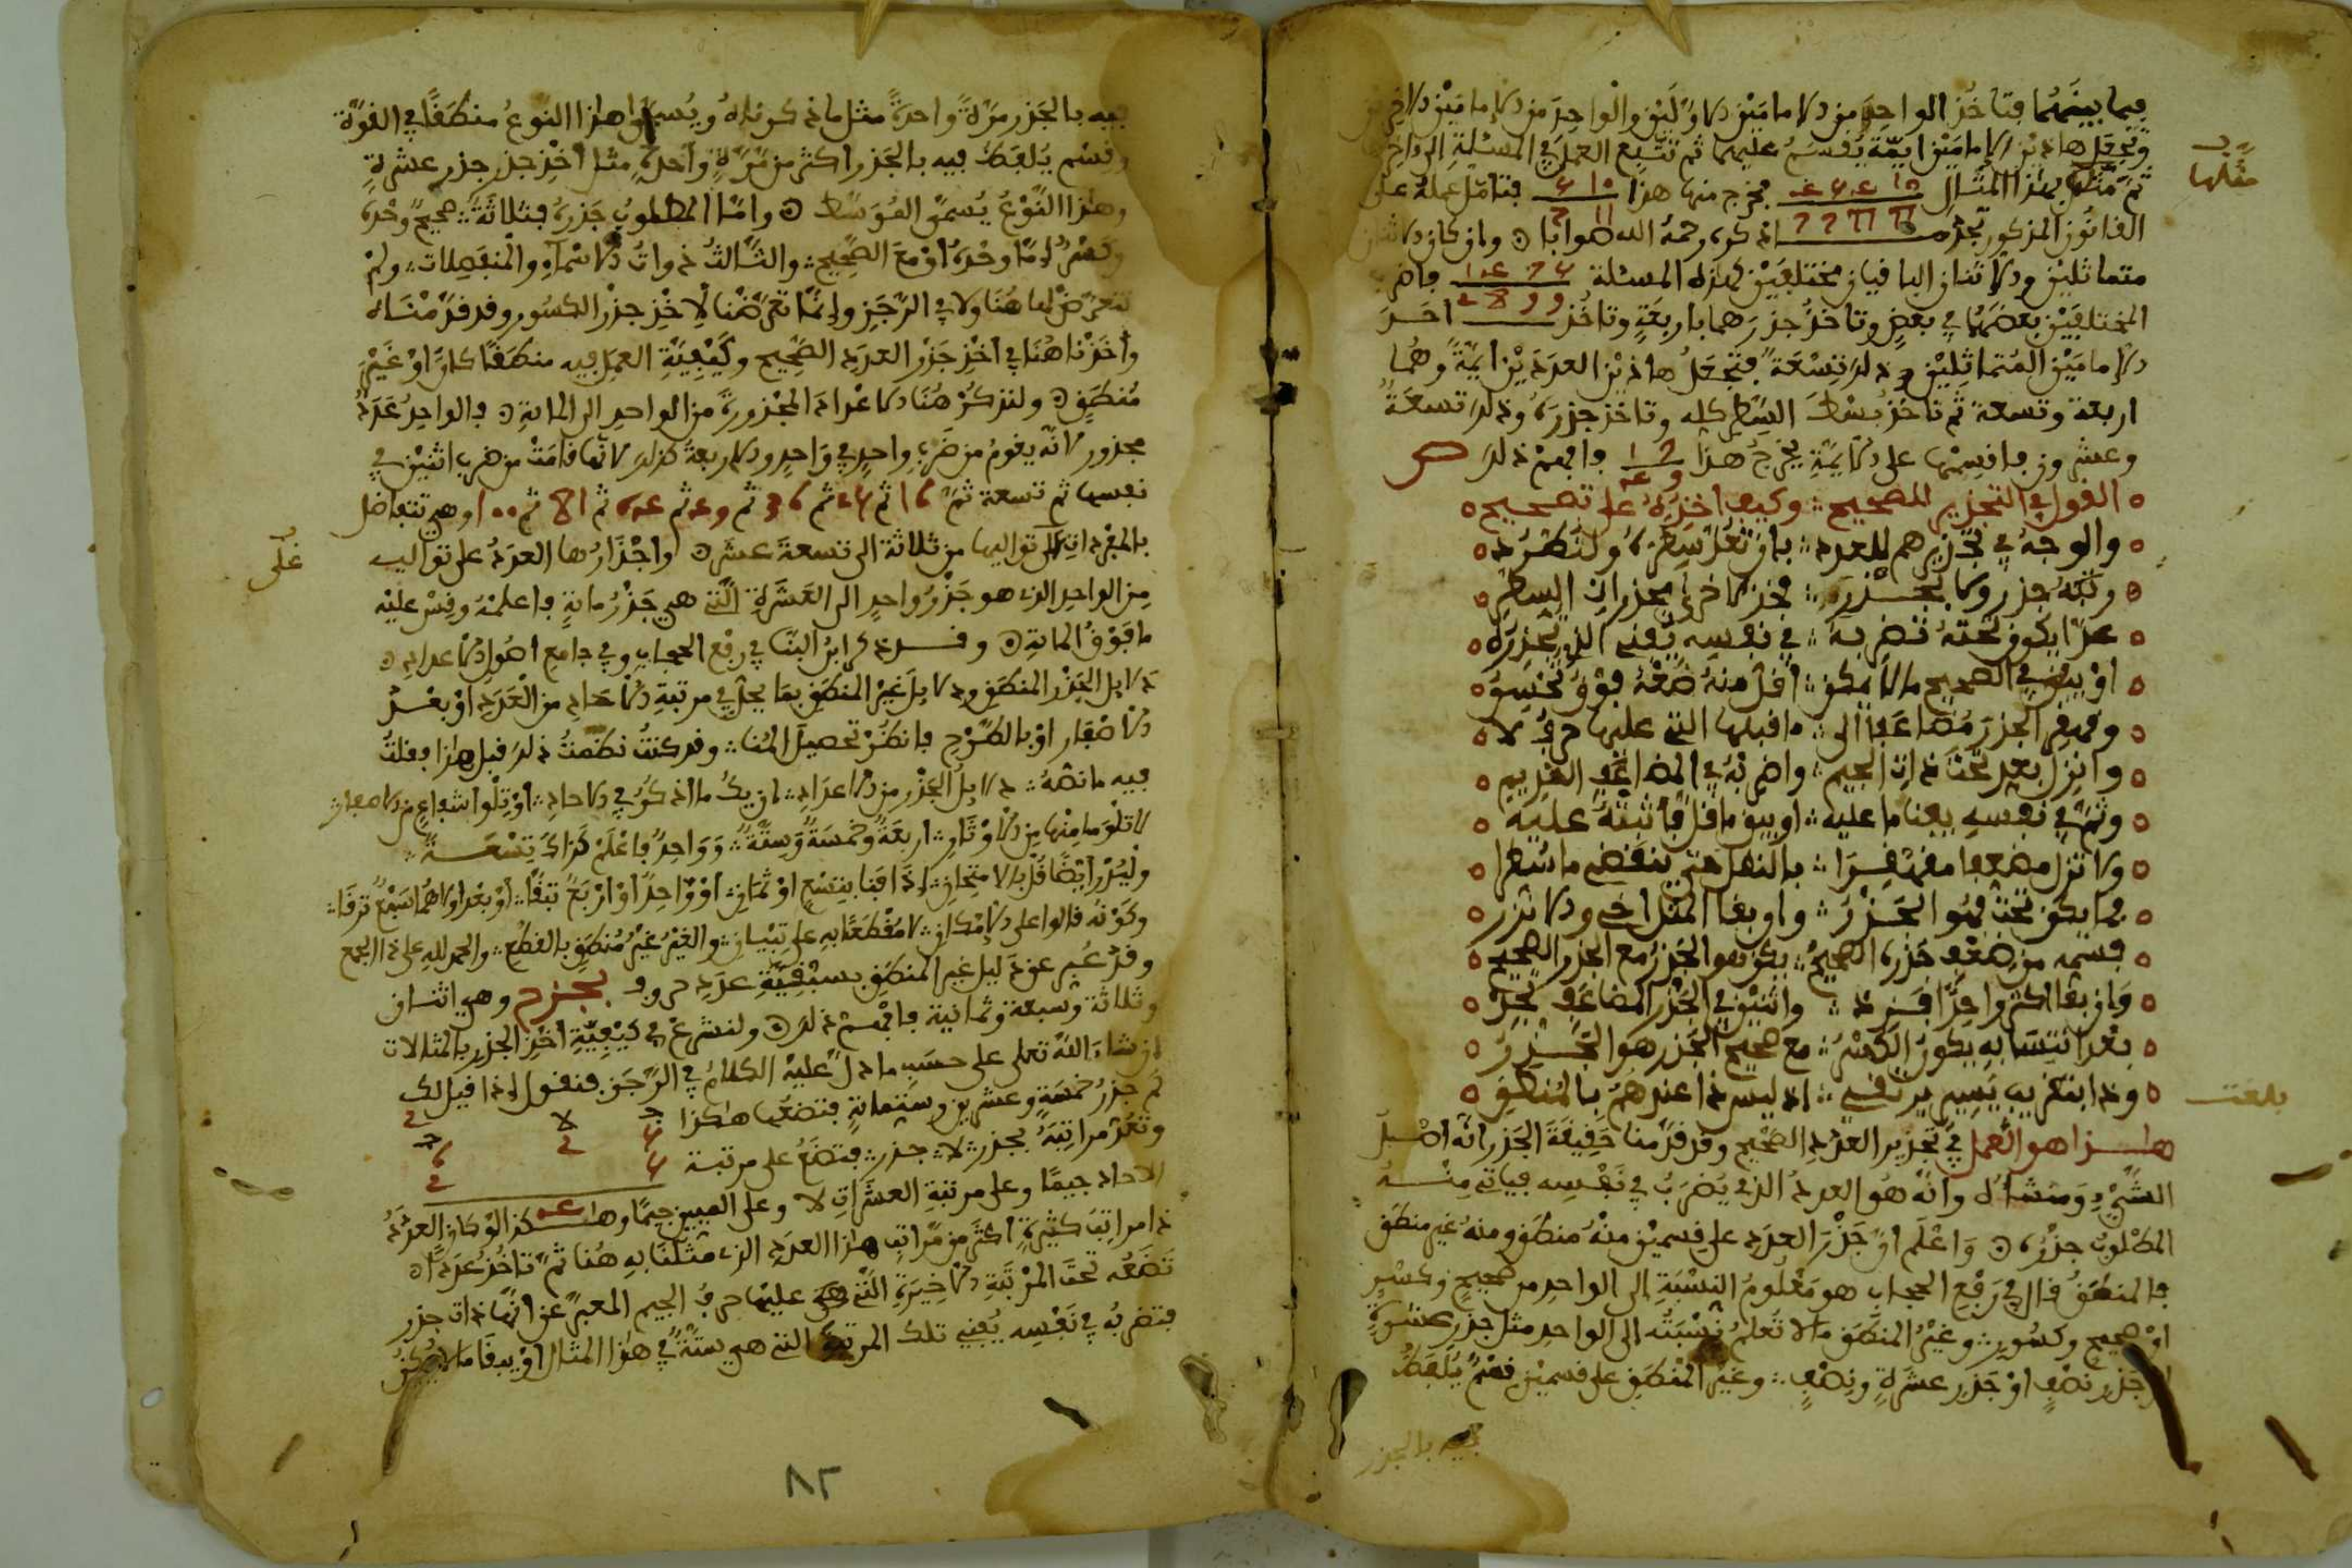 فيما بينهما فتاخذ الواحد من الامامين الاولين والواحد من الامامين الاخرين
وتجعل هاذين الامامين ايمة يقسم عليهما ثم تتبع العمل في المسئلة الى داخرها
مثلها
ثم مثلها بهذا المثال فخرج منها هذا فتامل عمله على
القانون المذكور تجده اذكره رحمه الله صوابا وان كان الاثنان
متماثلين والاثنان الباقيان مختلفين كهذه المسئلة فاضرب
المختلفين بعضهما في بعض وتاخذ جذرهما باربعة وتاخذ احد
الامامين المتماثلين وذلك تسعة فتجعل هاذين العددين ايمة وهما
اربعة وتسعة ثم تاخذ بسط السطر كله وتاخذ جذره وذلك تسعة
وعشرون فاقسمها على الايمة يخرج هذا فافهم ذلك
القول في التجذير للصحيح وكيف اخذه على تصحيح
والوجه في تجذيرهم للعدد بان تعد سطره ولتطرد
رتبه جذر ولا بجذر فخذ لاخرى مجذرات السطر
عدا يكون تحته تضربه في نفسه يفني الذي تجذره
او يبقي في الصحيح ما لا يمكن اقل منه ضعه فوق تحسن
وقهقر الجذر مضاعفا الى ما قبلها التي عليها حرف لا
وانزل بعد تحت ذات الجيم واضربه في المضاعف القديم
وثم في نفسه يفنا ما عليه او يبق ما قل فاثبته عليه
ولا تزل مضعفا مقهقرا بالنقل حتى ينقضي ما سطرا
فما يكون تحت فهو الجذر وان بقا المثل اخي والا نزر
قسمه من ضعف جذره الصحيح يكن هو الجذر مع الجذر الصحيح
وان بقا اكثر واحدا فزد واثنين في الجذر المضاعف تجد
بعد انتسابه يكون الكسر مع صحيح الجذر هو الجذر
وذا بتقريب يسير يرتقي اذ ليس ذا عندهم بالمنطق
بلغت
هذا هو العمل في تجذير العدد الصحيح وقد قدمنا حقيقة الجذر انه اصل
الشيء ومنشأه وانه هو العدد الذي يضرب في نفسه فياتي منه
المطلوب جذره واعلم ان جذر العدد على قسمين منه منطق ومنه غير منطق
فالمنطق قال في رفع الحجاب هو معلوم النسبة الى الواحد من صحيح وكسر
او صحيح وكسور وغير المنطق ما لا تعلم نسبته الى الواحد مثل جذر عشرة
او جذر نصف او جذر عشرة ونصف وغير المنطق على قسمين قسم يلفظ
فيه بالجذر
فيه بالجذر مرة واحدة مثل ما ذكرناه ويسموا هذا النوع منطقا في القوة
وقسم يلفظ فيه بالجذر اكثر من مرة واحدة مثل اخذ جذر جذر عشرة
وهذا النوع يسمى الموسط واما المطلوب جذره فثلاثة صحيح وحده
وكسر اما وحده او مع الصحيح والثالث ذوات الاسماء والمنفصلات ولم
نتعرض لها هنا ولا في الرجز وانما تعرضنا لاخذ جذر الكسور وقد قدمناه
واخذنا هنا في اخذ جذر العدد الصحيح وكيفية العمل فيه منطقا كان او غير
منطق ولنذكر هنا الاعداد المجذورة من الواحد الى الماية فالواحد عدد
مجذور لانه يقوم من ضرب واحد في واحد والاربعة كذلك لانها قامت من ضرب اثنين في
نفسها ثم تسعة ثم 16 ثم 25 ثم 36 ثم 49 ثم 64 ثم 81 ثم 100 وهي تتفاضل
بالمفردات على تواليها من ثلاثة الى تسعة عشر واجذارها العدد على توالي
على
من الواحد الذي هو جذر واحد الى العشرة التي هي جذر ماية فاعلمه وقس عليه
ما فوق الماية وقد ذكر ابن البنا في رفع الحجاب وفي جامع اصول الاعداد
دلايل الجذر المنطق ودلايل غير المنطق بما يحل في مرتبة الاحاد من العدد او بعد
الاصفار او بالطرح فانظر تحصيل المنا وقد كنت نظمت ذلك قبل هذا فقلت
فيه ما نصه دلايل الجذر من الاعداد ان يك ما اذكر في الاحاد او تلوا شفاع من الاصفار
لا تلو ما منها من الاوتار اربعة وخمسة وستة وواحد فاعلم كذاك تسعة
وليدر ايضا قل بالامتحان اذا فنا بتسع او ثمان او واحدا او اربع تبقا او بعد اولاهما سبع ترقا
وكونه قالوا على الامكان لا مقطعا به على تبيان والغير غير منطق بالقطع والحمد لله على ذا الجمع
وقد عبر عن دليل غير المنطق بسبقية عدد حروف بجزح وهي اثنان
وثلاثة وسبعة وثمانية فافهم ذلك ولنشرع في كيفية اخذ الجذر بالمثالات
ان شاء الله تعلى على حسب ما دل عليه الكلام في الرجز فنقول اذا قيل لك
كم جذر خمسة وعشرين وستماية فتضعها هكذا
وتعد مراتبه بجذر لا جذر فتضع على مرتبة
الاحاد جيما وعلى مرتبة العشرات لا وعلى الميين جيما وهكذا لو كان العدد
ذا مراتب كثيرة اكثر من مراتب هذا العدد الذي مثلنا به هنا ثم تاخذ عددا
تضعه تحت المرتبة الاخيرة التي هي عليها حرف الجيم المعبر عن انها ذات جذر
فتضربه في نفسه يفني تلك المرتبة التي هي ستة في هذا المثال او يبقا ما لا يمكن
٨٢